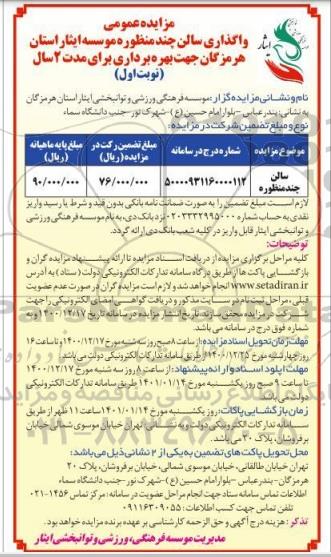 مزایده عمومی
واگذاری سالن چند منظوره موسسه ایثار استان
هرمزگان جهت بهره برداری برای مدت ۲ سال
(نوبت اول)
ایثار
نام و نشانی مزایده گزار: موسسه فرهنگی ورزشی و توانبخشی ایثار استان هرمزگان
به نشانی: بندرعباس - بلوار امام حسین (ع) - شهرک نور - جنب دانشگاه سماء
نوع و مبلغ تضمین شرکت در مزایده:
موضوع مزایده
شماره درج در سامانه
مبلغ تضمین شرکت در مزایده (ریال)
مبلغ پایه ماهیانه (ریال)
سالن چندمنظوره
۵۰۰۰۰۹۳۱۱۶۰۰۰۰۱۱۲
۷۶/۰۰۰/۰۰۰
۹۰/۰۰۰/۰۰۰
لازم است مبلغ تضمین را به صورت ضمانت نامه بانکی بدون قید و شرط یا رسید واریز
نقدی به حساب شماره ۰۲۰۳۳۳۲۹۹۵۰۰۰ نزد بانک دی، به نام موسسه فرهنگی ورزشی
و توانبخشی ایثار قابل واریز در کلیه شعب بانک دی ارائه گردد.
توضیحات:
کلیه مراحل برگزاری مزایده از دریافت اسناد مزایده تا ارائه پیشنهاد مزایده گران و
بازگشایی پاکت ها از طریق درگاه سامانه تدارکات الکترونیکی دولت (ستاد) به آدرس
www.setadiran.ir انجام خواهد شد و لازم است مزایده گران در صورت عدم عضویت
قبلی، مراحل ثبت نام در سایت مذکور و دریافت گواهی امضای الکترونیکی را جهت
شرکت در مزایده محقق سازند. تاریخ انتشار مزایده در سامانه تاریخ ۱۴۰۰/۱۲/۱۷ و به
شماره فوق درج در سامانه می باشد.
مهلت زمان تحویل اسناد مزایده: از ساعت ۸ صبح روز سه شنبه مورخ ۱۴۰۰/۱۲/۱۷ تا ساعت ۱۶
روز چهارشنبه مورخ ۱۴۰۰/۱۲/۲۵ از طریق سامانه تدارکات الکترونیکی دولت می باشد.
مهلت آپلود اسناد و ارائه پیشنهاد: از ساعت ۸ روز سه شنبه مورخ ۱۴۰۰/۱۲/۱۷
تا ساعت ۹ صبح روز یکشنبه مورخ ۱۴۰۱/۰۱/۱۴ از طریق سامانه تدارکات الکترونیکی
دولت می باشد.
زمان بازگشایی پاکات: روز یکشنبه مورخ ۱۴۰۱/۰۱/۱۴ ساعت ۱۱ ظهر از طریق
سامانه تدارکات الکترونیکی دولت و به نشانی تهران خیابان موسوی شمالی خیابان
برفروشان، پلاک ۲۰ می باشد.
محل تحویل پاکت های تضمین به یکی از ۲ نشانی ذیل می باشد:
تهران خیابان طالقانی، خیابان موسوی شمالی، خیابان برفروشان، پلاک ۲۰
هرمزگان - بندرعباس - بلوار امام حسین (ع) - شهرک نور - جنب دانشگاه سماء
اطلاعات تماس سامانه ستاد جهت انجام مراحل عضویت در سامانه: مرکز تماس ۱۴۵۶-۰۲۱
تلفن تماس جهت کسب اطلاعات: ۰۹۱۱۶۳۰۹۰۵۵
تذکر: هزینه درج آگهی و حق الزحمه کارشناسی بر عهده برنده مزایده خواهد بود.
مدیریت موسسه فرهنگی، ورزشی و توانبخشی ایثار